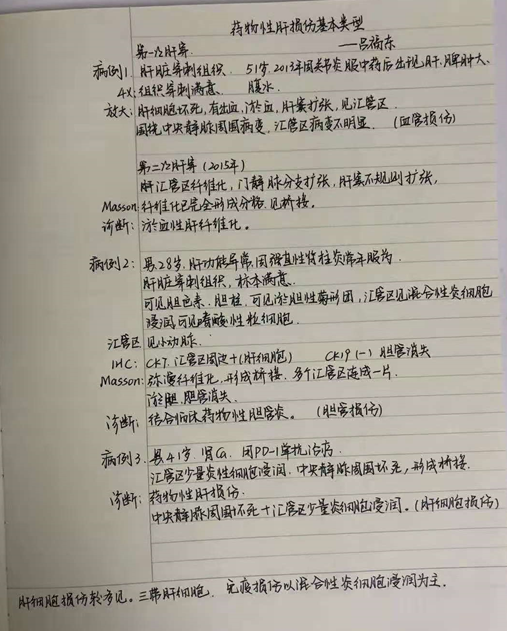 药物性肝损伤基本类型
——吕福东
第一次肝穿
病例1. 肝脏穿刺组织. 51岁. 2013年因关节炎服中药后出现肝.脾肿大、
4X: 组织穿刺满意. 腹水.
放大: 肝细胞坏死,有出血,淤血,肝窦扩张,见汇管区.
围绕中央静脉周围病变.汇管区病变不明显. (血管损伤)
第二次肝穿(2015年)
肝汇管区纤维化,门静脉分支扩张,肝窦不规则扩张,
Masson: 纤维化已完全形成分格.见桥接。
诊断: 淤血性肝纤维化。
病例2: 男.28岁.肝功能异常,因强直性脊柱炎常年服药.
肝脏穿刺组织,标本满意.
可见胆色素.胆栓.可见淤胆性菊形团,汇管区见混合性炎细胞
浸润,可见嗜酸性粒细胞.
汇管区 见小动脉.
IHC: CK7.汇管区周边+(肝细胞) CK19(-) 胆管消失
Masson: 弥漫纤维化,形成桥接.多个汇管区连成一片.
淤胆,胆管消失.
诊断: 结合临床药物性胆管炎。 (胆管损伤)
病例3. 男41岁.肾Ca.因PD-1单抗治疗
汇管区少量炎性细胞浸润.中央静脉周围坏死,形成桥接.
诊断: 药物性肝损伤.
中央静脉周围坏死+汇管区少量炎细胞浸润。(肝细胞损伤)
肝细胞损伤较多见。三带肝细胞. 免疫损伤以混合性炎细胞浸润为主.